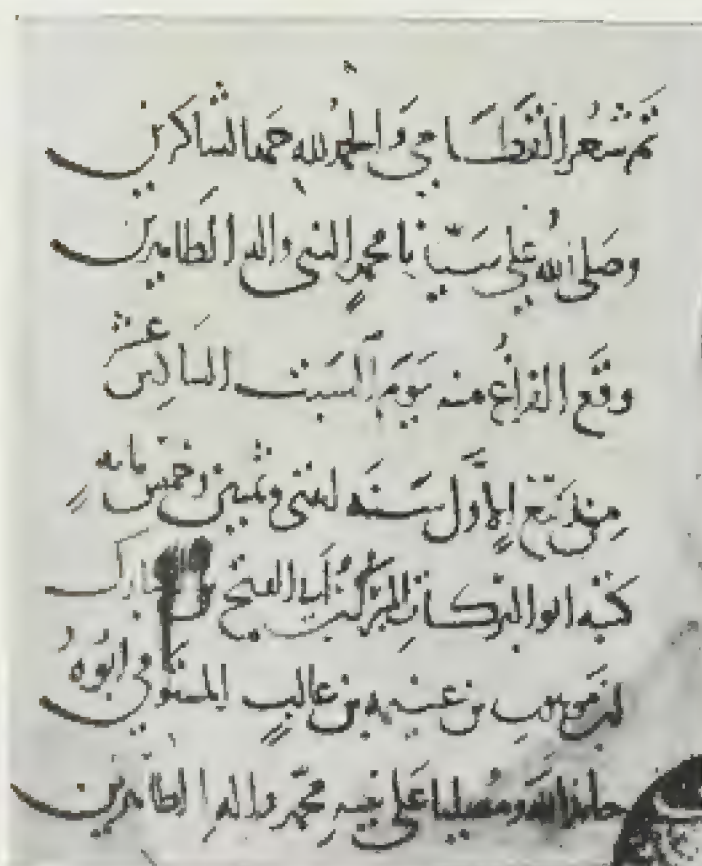 تم شعر القطامي والحمد لله حمد الشاكرين
وصلى الله على سيدنا محمد النبي واله الطاهرين
وقع الفراغ منه يوم السبت السادس عشر
من ربيع الاول سنة وخمس مايه
كتبه ابو البركات ابي الفتح بن المبارك
بن موهوب بن غنيمه بن غالب المتوفي ابوه
حامدا لله ومصليا على نبيه محمد واله الطاهرين